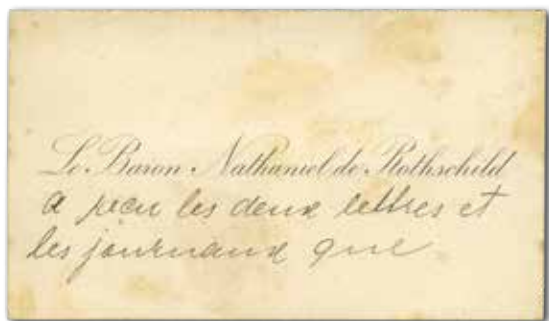 Le Baron Nathaniel de Rothschild
a recu les deux lettres et
les journaux que